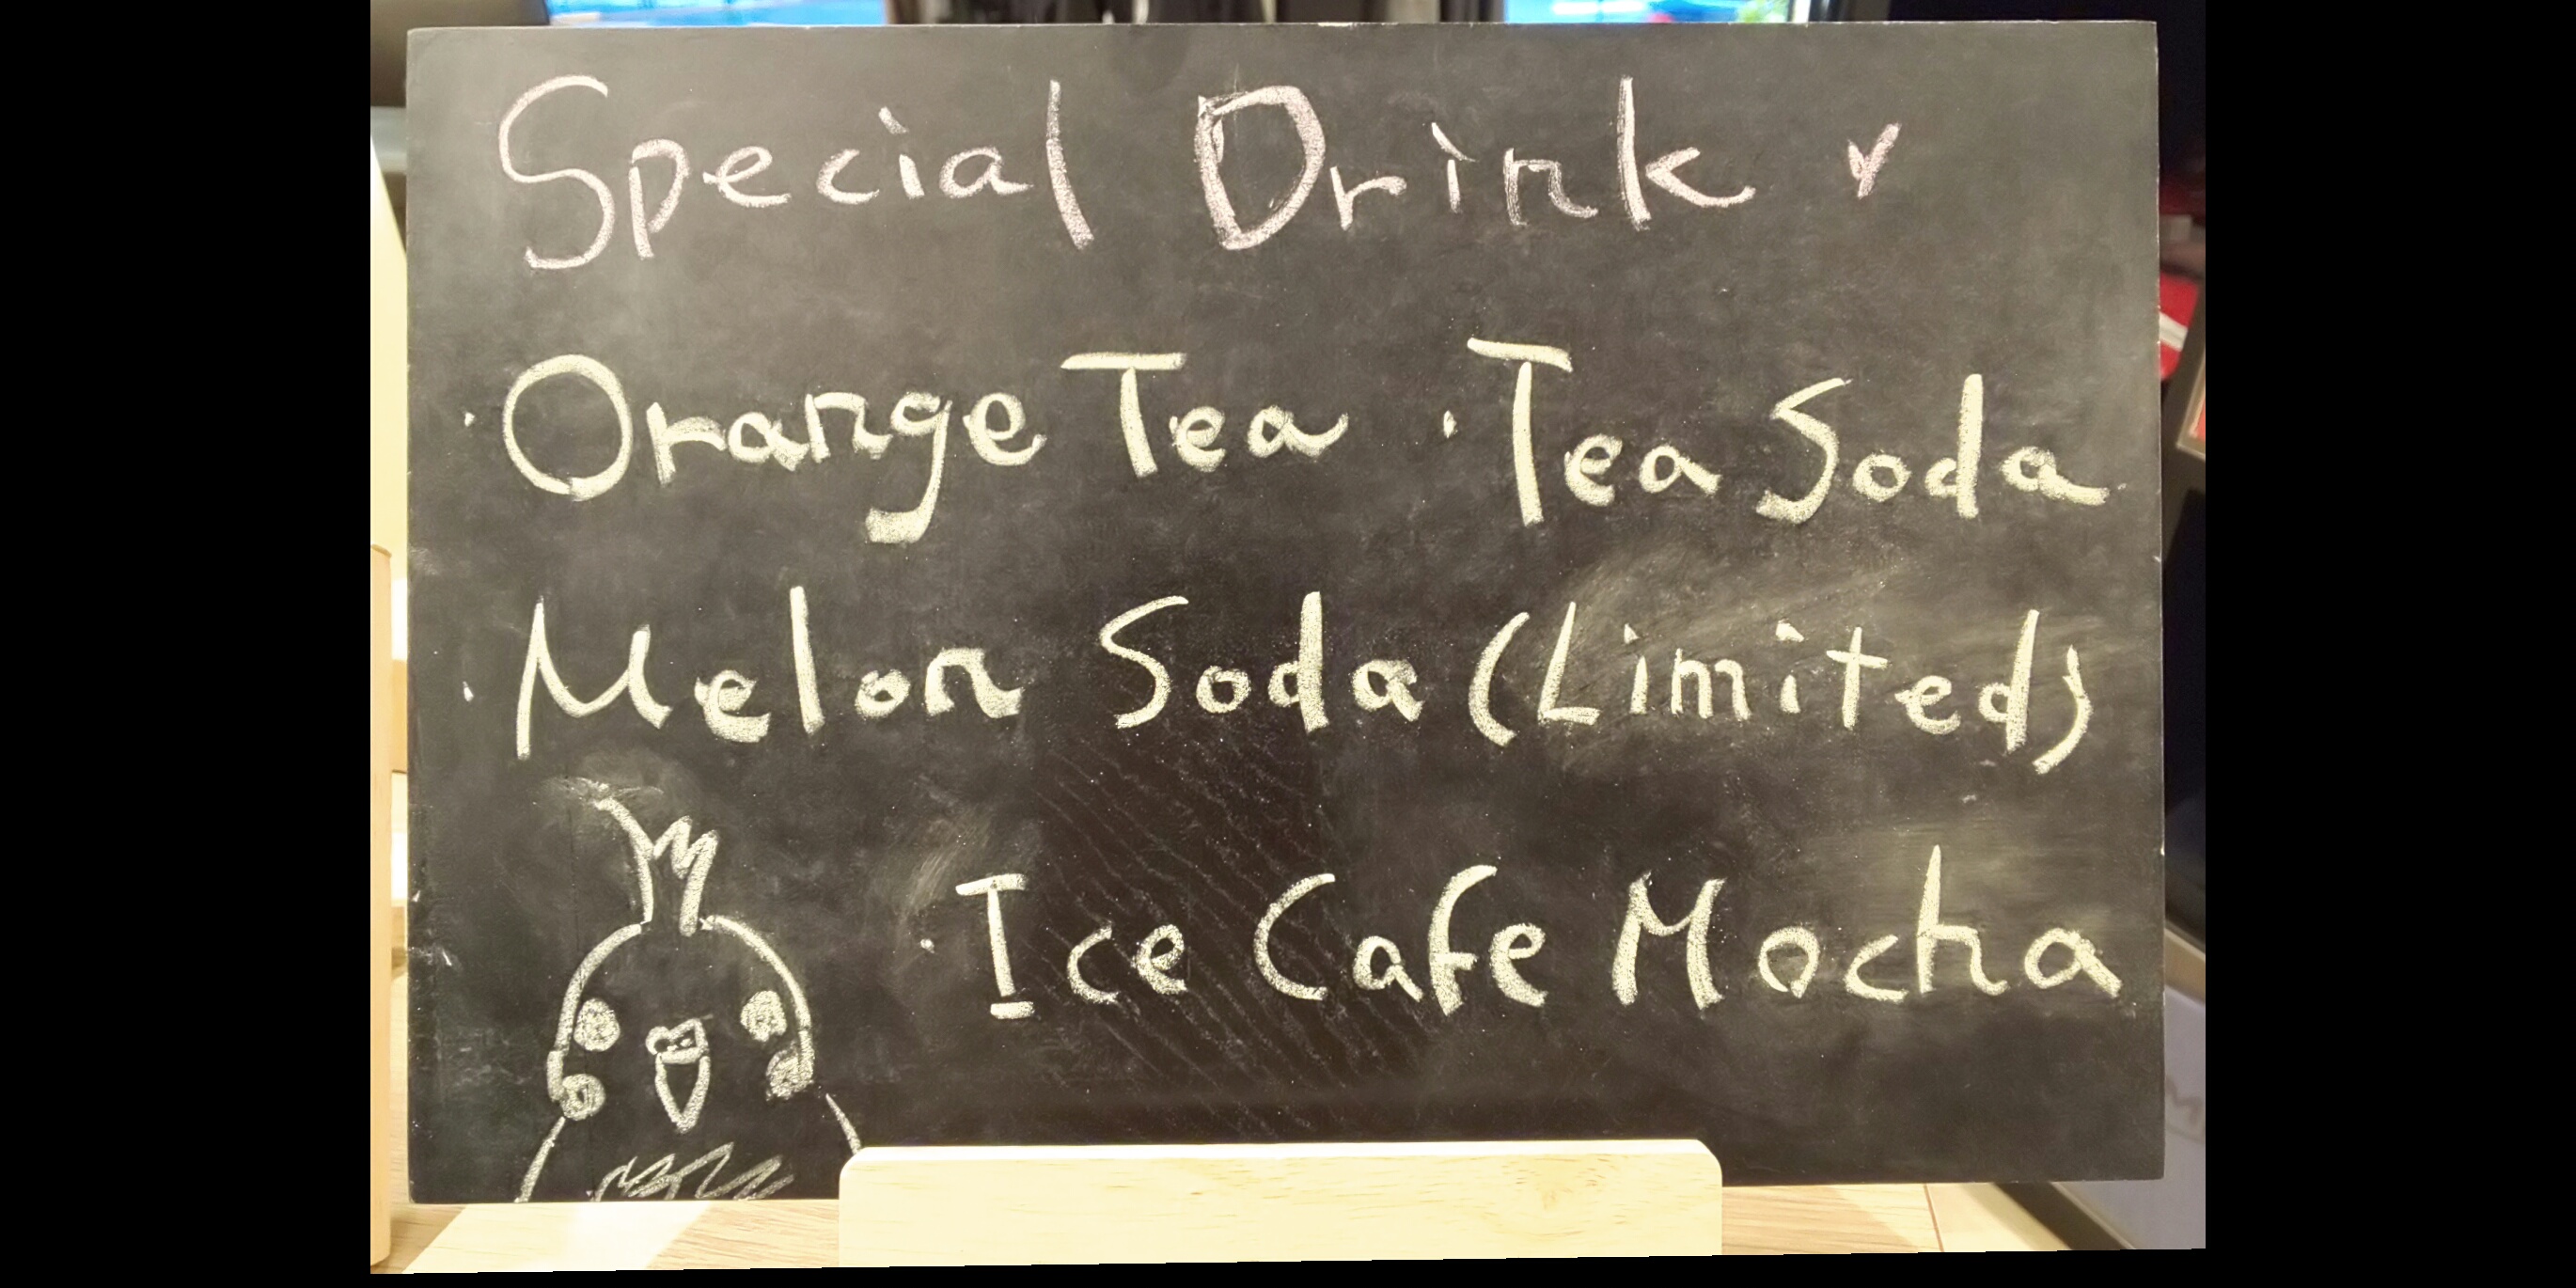 Special Drink ♥
・Orange Tea ・Tea Soda
・Melon Soda (Limited)
・Ice Cafe Mocha